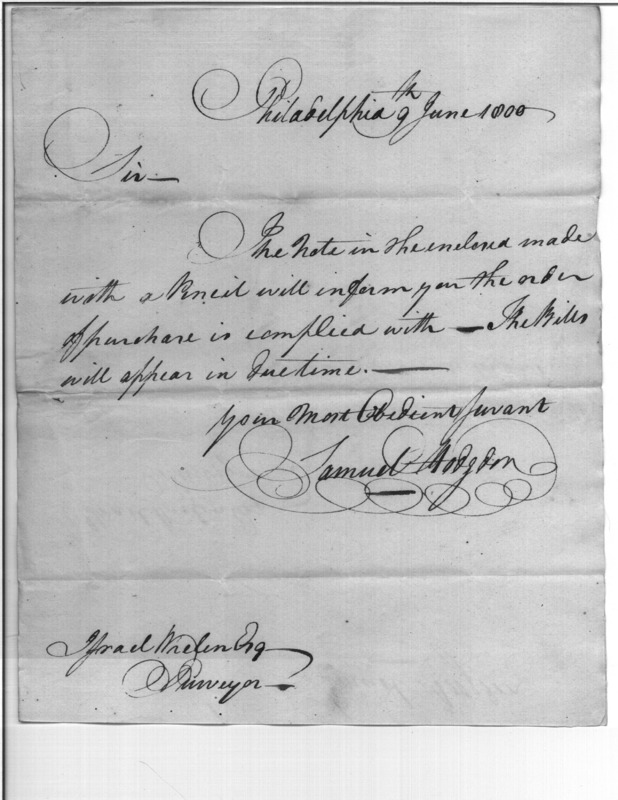 Philadelphia 9th June 1800
Sir—
The Note in the enclosed made
with a Pencil will inform you the order
of purchase is complied with — The Bills
will appear in due time.—
Your Most Obedient Servant
Samuel Hodgdon
Israel Whelen Esq
Purveyor—